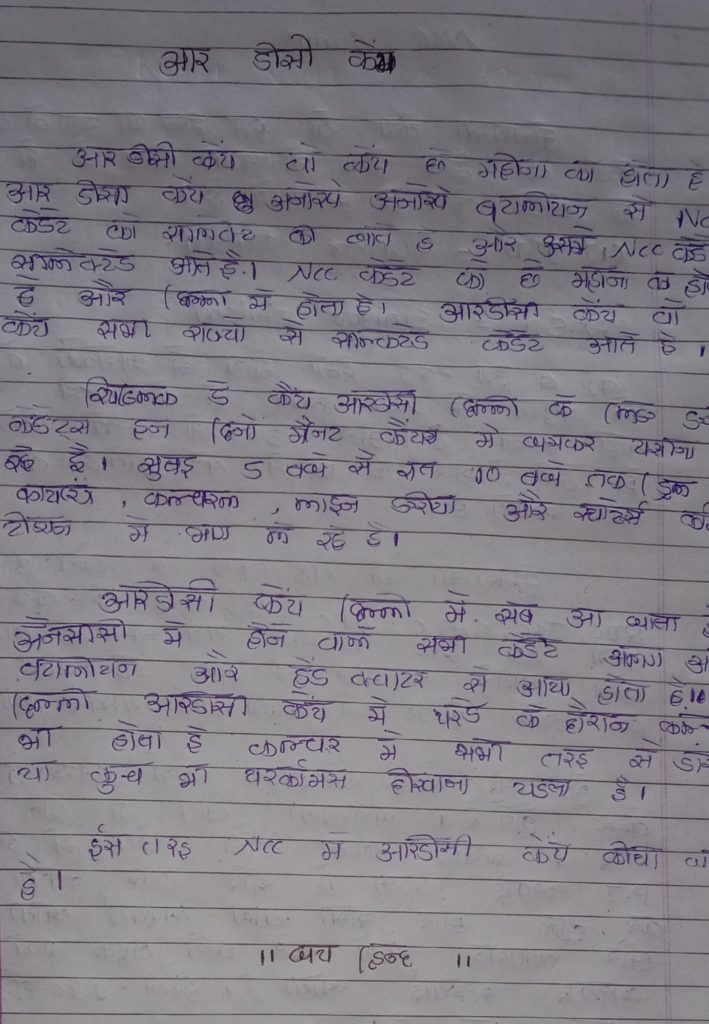 आर डीसी केंप
आर डीसी केंप वो केंप छ महीना का होता है
आर डीसी केंप अनोखे अनोखे बटालीयन से NC
केडेट को सीलेक्ट की जाते है और उसमे NCC केडे
सीलेक्टेड आते है। NCC केडेट को छ महीना का हो
है और दिल्ली में होता है। आरडीसी केंप वो
केंप सभी राज्यो से सीलेक्टेड केडेट आते है।
रिपब्लिक डे केंप आरडीसी दिल्ली के
केडेट्स इन दिनो कैंट केंपस मे जमकर पसीना
रहे है। सुबह 5 बजे से रात 10 बजे तक ड्रिल
फायरिंग, कल्चरल, लाइन एरीया और स्पोर्टस
टीशन में भाग ले रहे है।
आरडीसी केंप दिल्ली में सब आ जाता है
अनसीसी में होने वाले सभी केडेट अलग अ
बटालीयन और हेड क्वाटर से आया होता है।
दिल्ली आरडीसी केंप में परेड के दौरान कल्च
भी होता है कल्चर में सभी तरह से डां
या कुछ भी परफोमंस दीखाना पडता है।
ईस तरह NCC में आरडीसी केंप कीया जा
है।
॥ जय हिन्द ॥